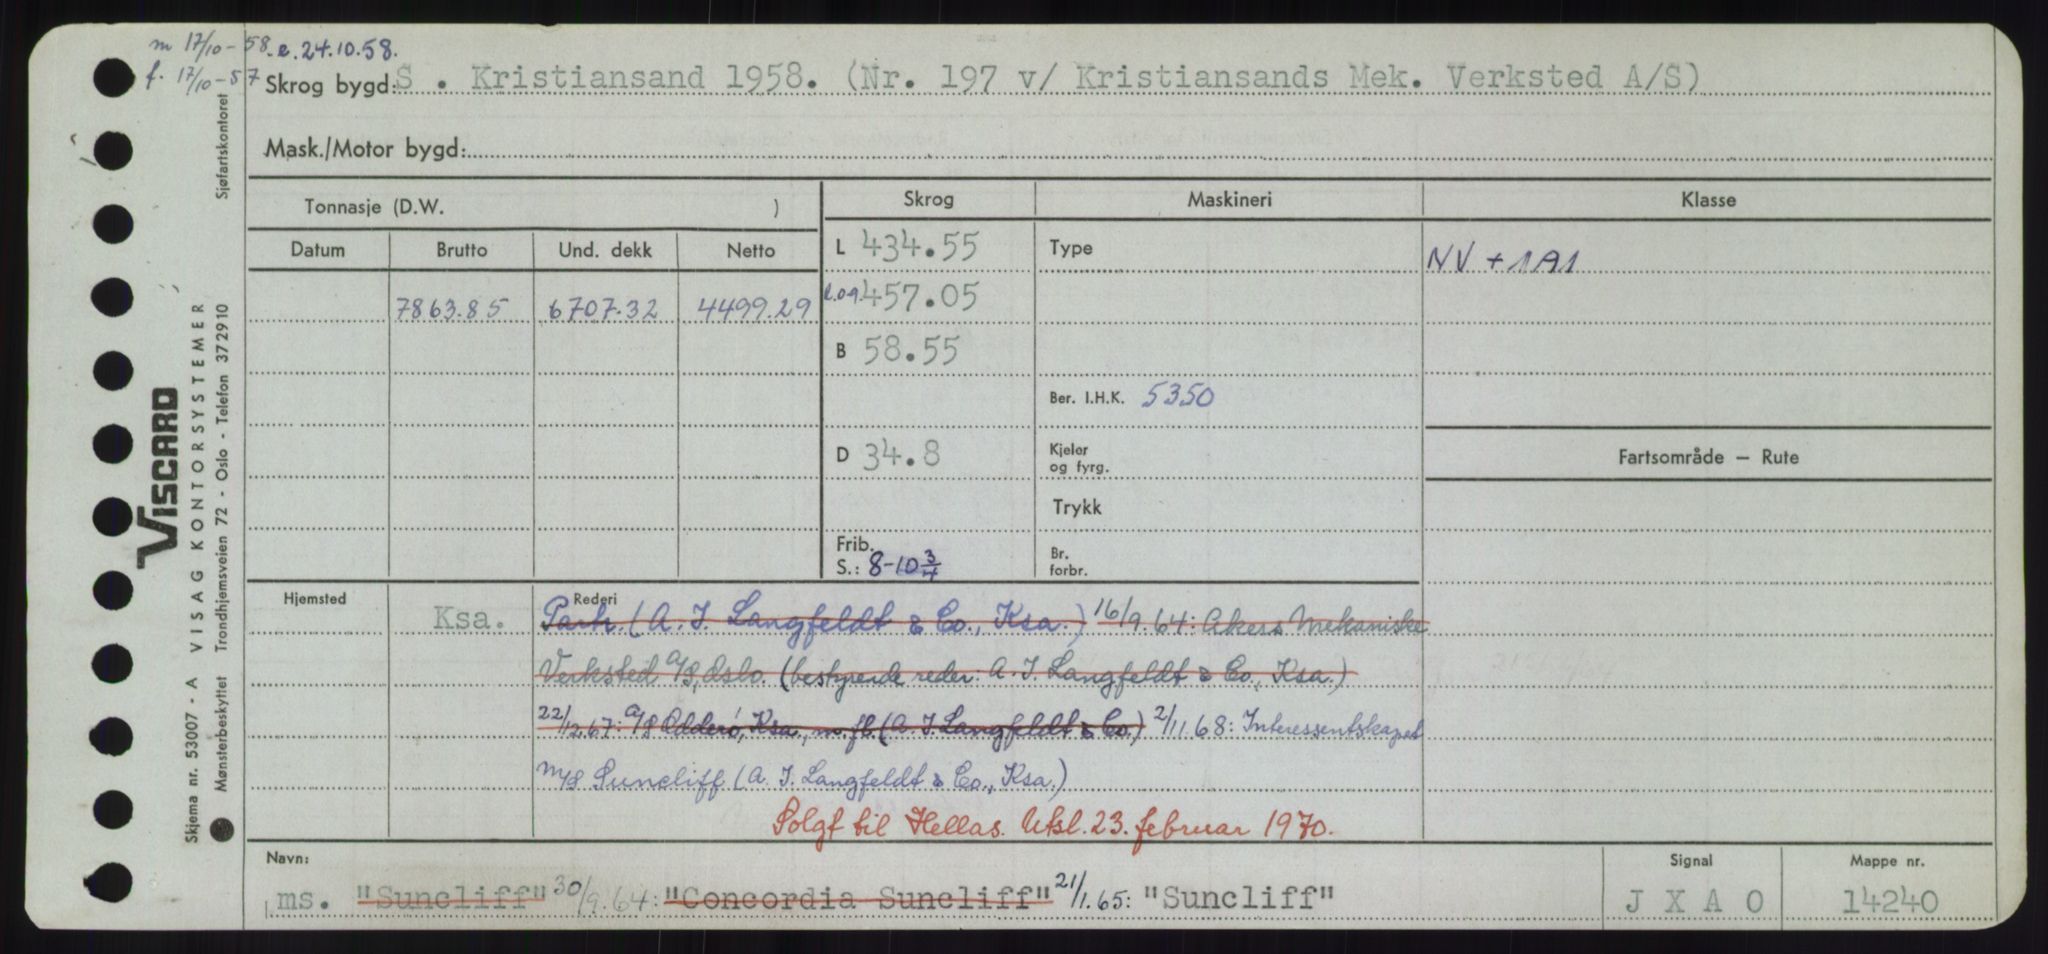 m 17/10-58. e. 24.10.58.
f. 17/10-57
Skrog bygd: S . Kristiansand 1958. (Nr. 197 v/ Kristiansands Mek. Verksted A/S)
Mask./Motor bygd:
Tonnasje (D.W. )
Skrog Maskineri Klasse
Datum Brutto Und. dekk Netto
L 434.55 Type NV + 1A1
7863.85 6707.32 4499.29 l.o.a. 457.05
B 58.55
Ber. I.H.K. 5350
D 34.8 Kjeler og fyrg.
Fartsområde — Rute
Trykk
Frib. S.: 8-10 3/4 Br. forbr.
Hjemsted Ksa. Rederi
Partr. (A. I. Langfeldt & Co., Ksa.) 16/9.64: Akers Mekaniske
Verksted A/S, Oslo. (bestyrende reder: A. I. Langfeldt & Co., Ksa.)
22/12.67: A/S Odderø, Ksa., m.fl. (A. I. Langfeldt & Co.) 2/11.68: Interessentskapet
M/S Suncliff (A. I. Langfeldt & Co., Ksa.)
Solgt til Hellas. Utsl. 23. februar 1970.
Navn: ms. "Suncliff" 30/9.64: "Concordia Suncliff" 21/1.65: "Suncliff"
Signal J X A O
Mappe nr. 14240
VISCARD
VISAG KONTORSYSTEMER
Skjema nr. 53007 - A
Mønsterbeskyttet Trondhjemsveien 72 - Oslo - Telefon 372910 Sjøfartskontoret